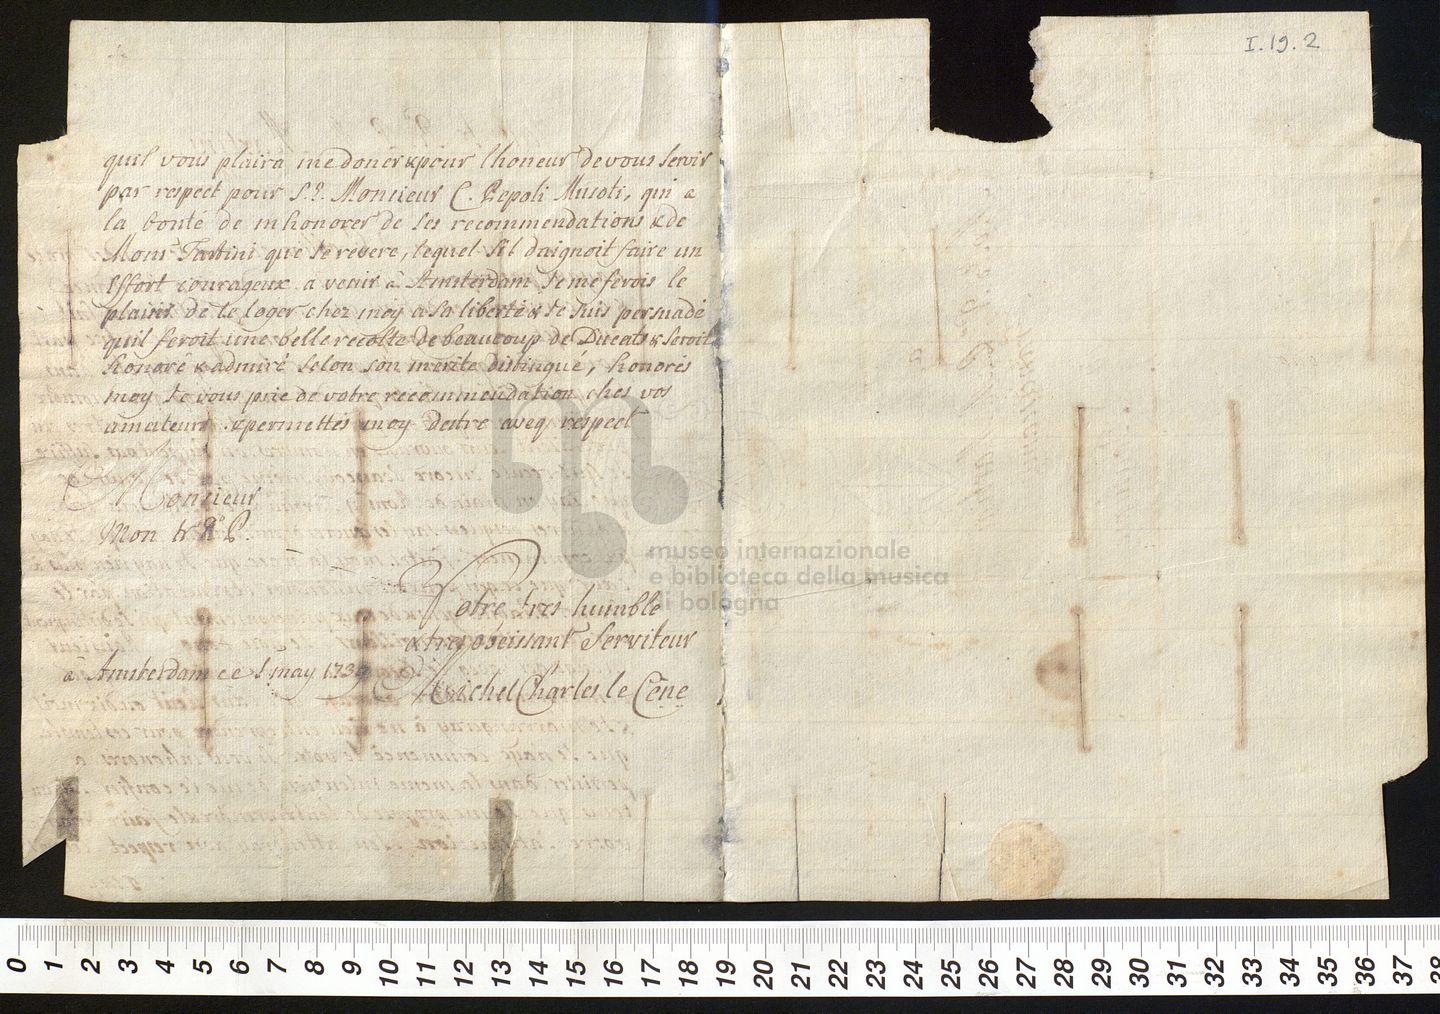 I.19.2
quil vous plaira me doner & pour lhoneur de vous servir
par respect pour S.E. Monsieur C. Pepoli Musoti, qui a
la bonté de mhonorer de ses recommendations & de
Monsr Tartini que Je revere, lequel sil daignoit faire un
Effort courageux a venir à Amsterdam Je me ferois le
plaisir de le loger chez moy a sa liberté & Je suis persuadé
quil feroit une belle recolte de beaucoup de Ducats & seroit
honoré & admiré selon son merite distinqué, honorés
moy Je vous prie de votre recommendation ches vos
amateurs & permettes moy destre aveq respect
Monsieur
Mon tr. Rd P.
Votre tres humble
& tres obeissant Serviteur
à Amsterdam ce 1 may 1739
Michel Charles le Cène
museo internazionale
e biblioteca della musica
di bologna
0 1 2 3 4 5 6 7 8 9 10 11 12 13 14 15 16 17 18 19 20 21 22 23 24 25 26 27 28 29 30 31 32 33 34 35 36 37 38